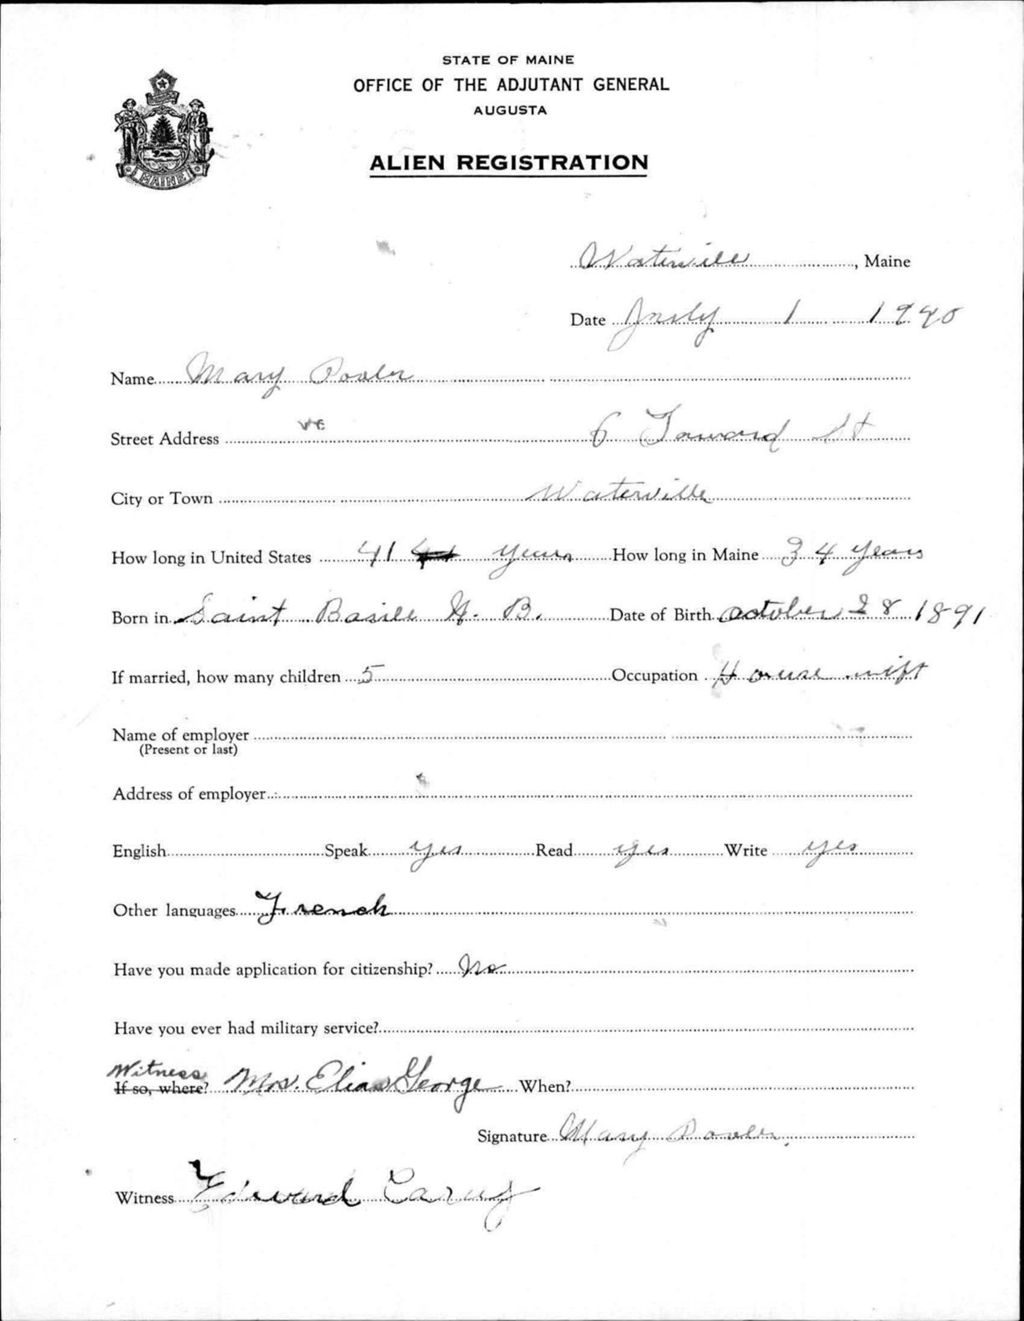 STATE OF MAINE
OFFICE OF THE ADJUTANT GENERAL
AUGUSTA
ALIEN REGISTRATION
MAINE
Waterville, Maine
Date July 1 1940
Name Mary Pooler
Street Address 6 St
City or Town Waterville
How long in United States 41 years How long in Maine 34 years
Born in Saint Basile N. B. Date of Birth October 28 1891
If married, how many children 5 Occupation House wift
Name of employer
(Present or last)
Address of employer
English Speak yes Read yes Write yes
Other languages French
Have you made application for citizenship? No
Have you ever had military service?
Witness
If so, where? Mrs. Elias George When?
Signature Mary Pooler.
Witness Edward Carey